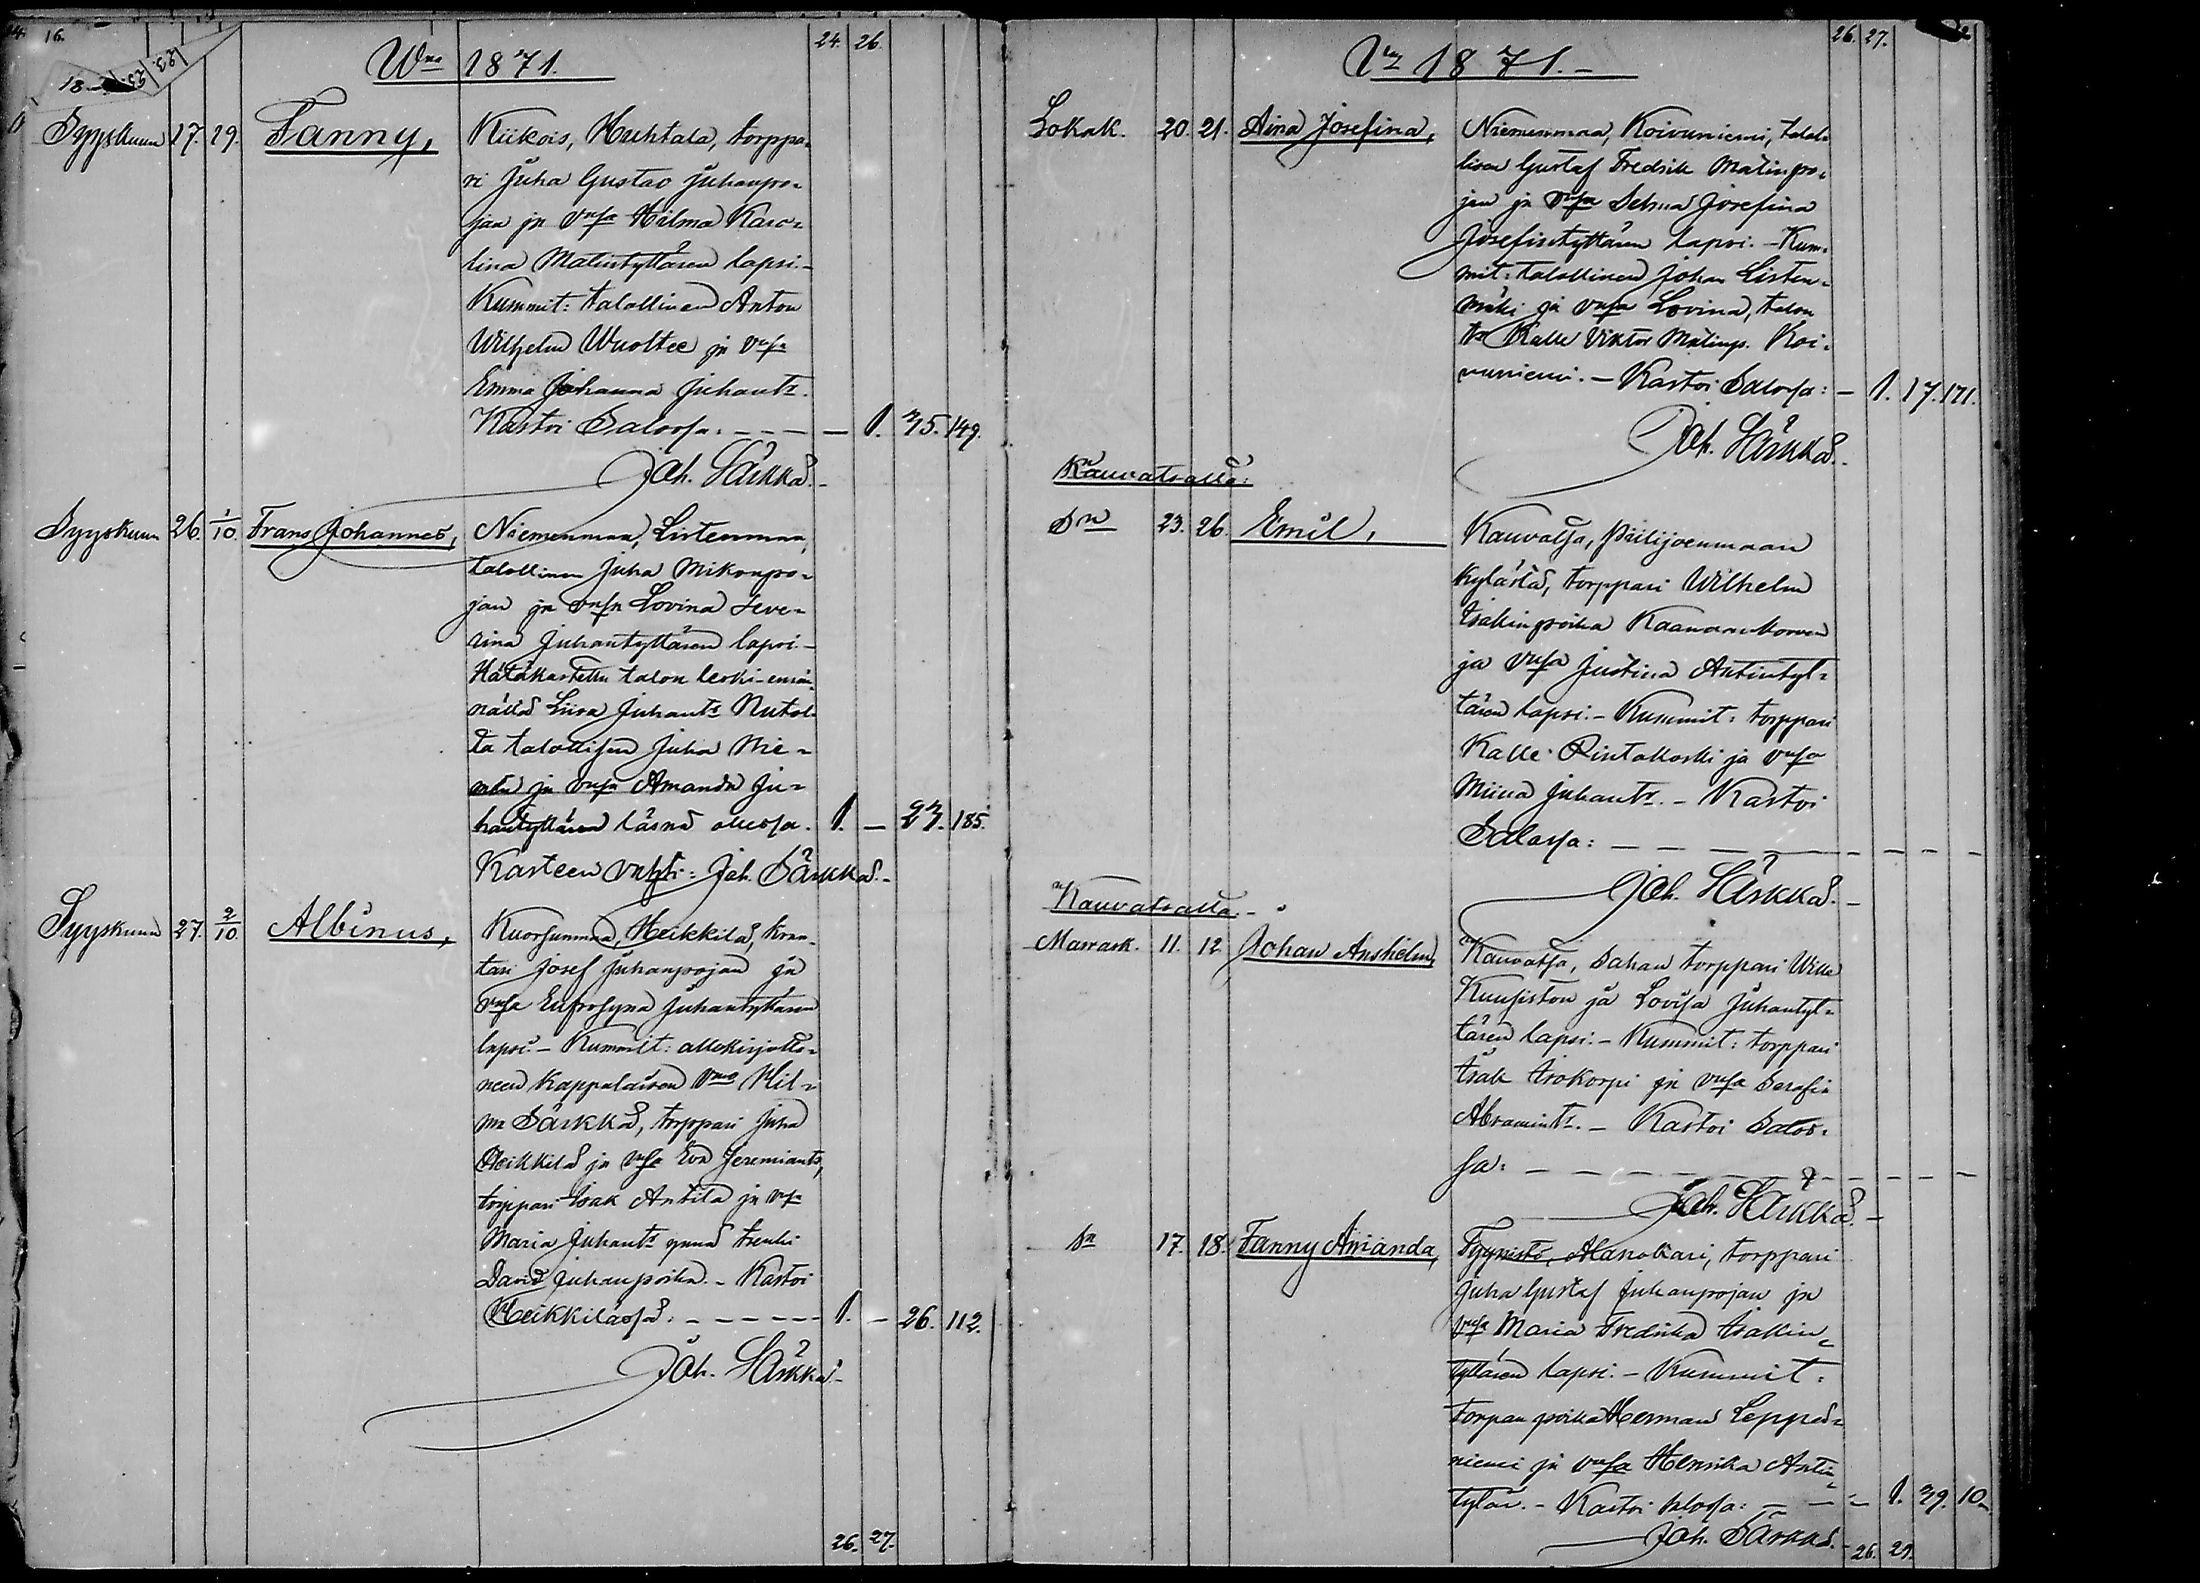 16.
18-
23.
24. 26.
Wna 1871.
Syyskuun 17. 29. Fanny, Kiikois, Huhtala, torppa-
ri Juha Gustav Juhanpo-
jan ja vmsa Hilma Karo-
lina Matintyttären lapsi.-
Kummit: talollinen Anton
Wilhelm Wuoltee ja vmsa
Emma Johanna Juhantr.
Kastoi Salossa: - - - - 1. 35. 149.
Joh. Särkkä.-
Syyskuun 26. 1/10. Frans Johannes, Niemenmaa, Listenmaa,
talollinen Juha Mikonpo-
jan ja vmsa Lovina Seve-
rina Juhantyttären lapsi.-
Hätäkastettu talon leski-emän-
nältä Liisa Juhantr
talollisen Juha
ja vmsa Amanda Ju-
hantyttären läsnä ollessa. 1. - 27. 185.
Kasteen vahvisti: Joh. Särkkä.-
Syyskuun 27. 2/10. Albinus, Kuorsunmaa, Heikkilä, kraa-
tari Josef Juhanpojan ja
vmsa Eufrosyna Juhantyttären
lapsi.- Kummit: allekirjotta-
neen kappalaisen vmo Hil-
ma Särkkä, torppari Juha
Heikkilä ja vmsa Eva Jeremiantr,
torppari Isak Antila ja vmsa
Maria Juhantr ynnä trenki
David Juhanpoika.- Kastoi
Heikkilässä: - - - - - 1. - 26. 112.
Joh. Särkkä.-
26. 27.
26. 27.
Vna 1871.-
Lokak. 20. 21. Aina Josefina, Niemenmaa, Koivuniemi, talol-
lisen Gustaf Fredrik Matinpo-
jan ja vmsa Selma Josefina
Josefintyttären lapsi.- Kum-
mit: talollinen Johan Listen-
mäki ja vmsa Lovina, talon
Kalle Viktor Matinp. Koi-
vuniemi.- Kastoi Salossa: - 1. 17. 171.
Joh. Särkkä.-
Kauvatsalla:
Dn 23. 26. Emil, Kauvatsa, Piilijoenmaan
kylästä, torppari Wilhelm
Isakinpoika Kaanaankorven
ja vmsa Justina Antintyt-
tären lapsi.- Kummit: torppari
Kalle Rintakoski ja vmsa
Miina Juhantr.- Kastoi
Salossa: - - - - - - - - -
Joh. Särkkä.-
Kauvatsalla.-
Marrask. 11. 12. Johan Anshelm, Kauvatsa, Sahan torppari Wille
Kuusiston ja Lovisa Juhantyt-
tären lapsi.- Kummit: torppari
Isak Isokorpi ja vmsa Serafia
Abramintr.- Kastoi Salos-
sa: - - - - - - - - - -
Joh. Särkkä.-
Dn 17. 18. Fanny Amanda, Tyyristö, Alanokari, torppari
Juha Gustaf Juhanpojan ja
vmsa Maria Fredrika Isakin-
tyttären lapsi.- Kummit:
torpan poika Herman Leppä-
niemi ja vmsa Henrika Antin-
tytär.- Kastoi salossa: - - - 1. 39. 10.
Joh. Särkkä.-
26. 29.